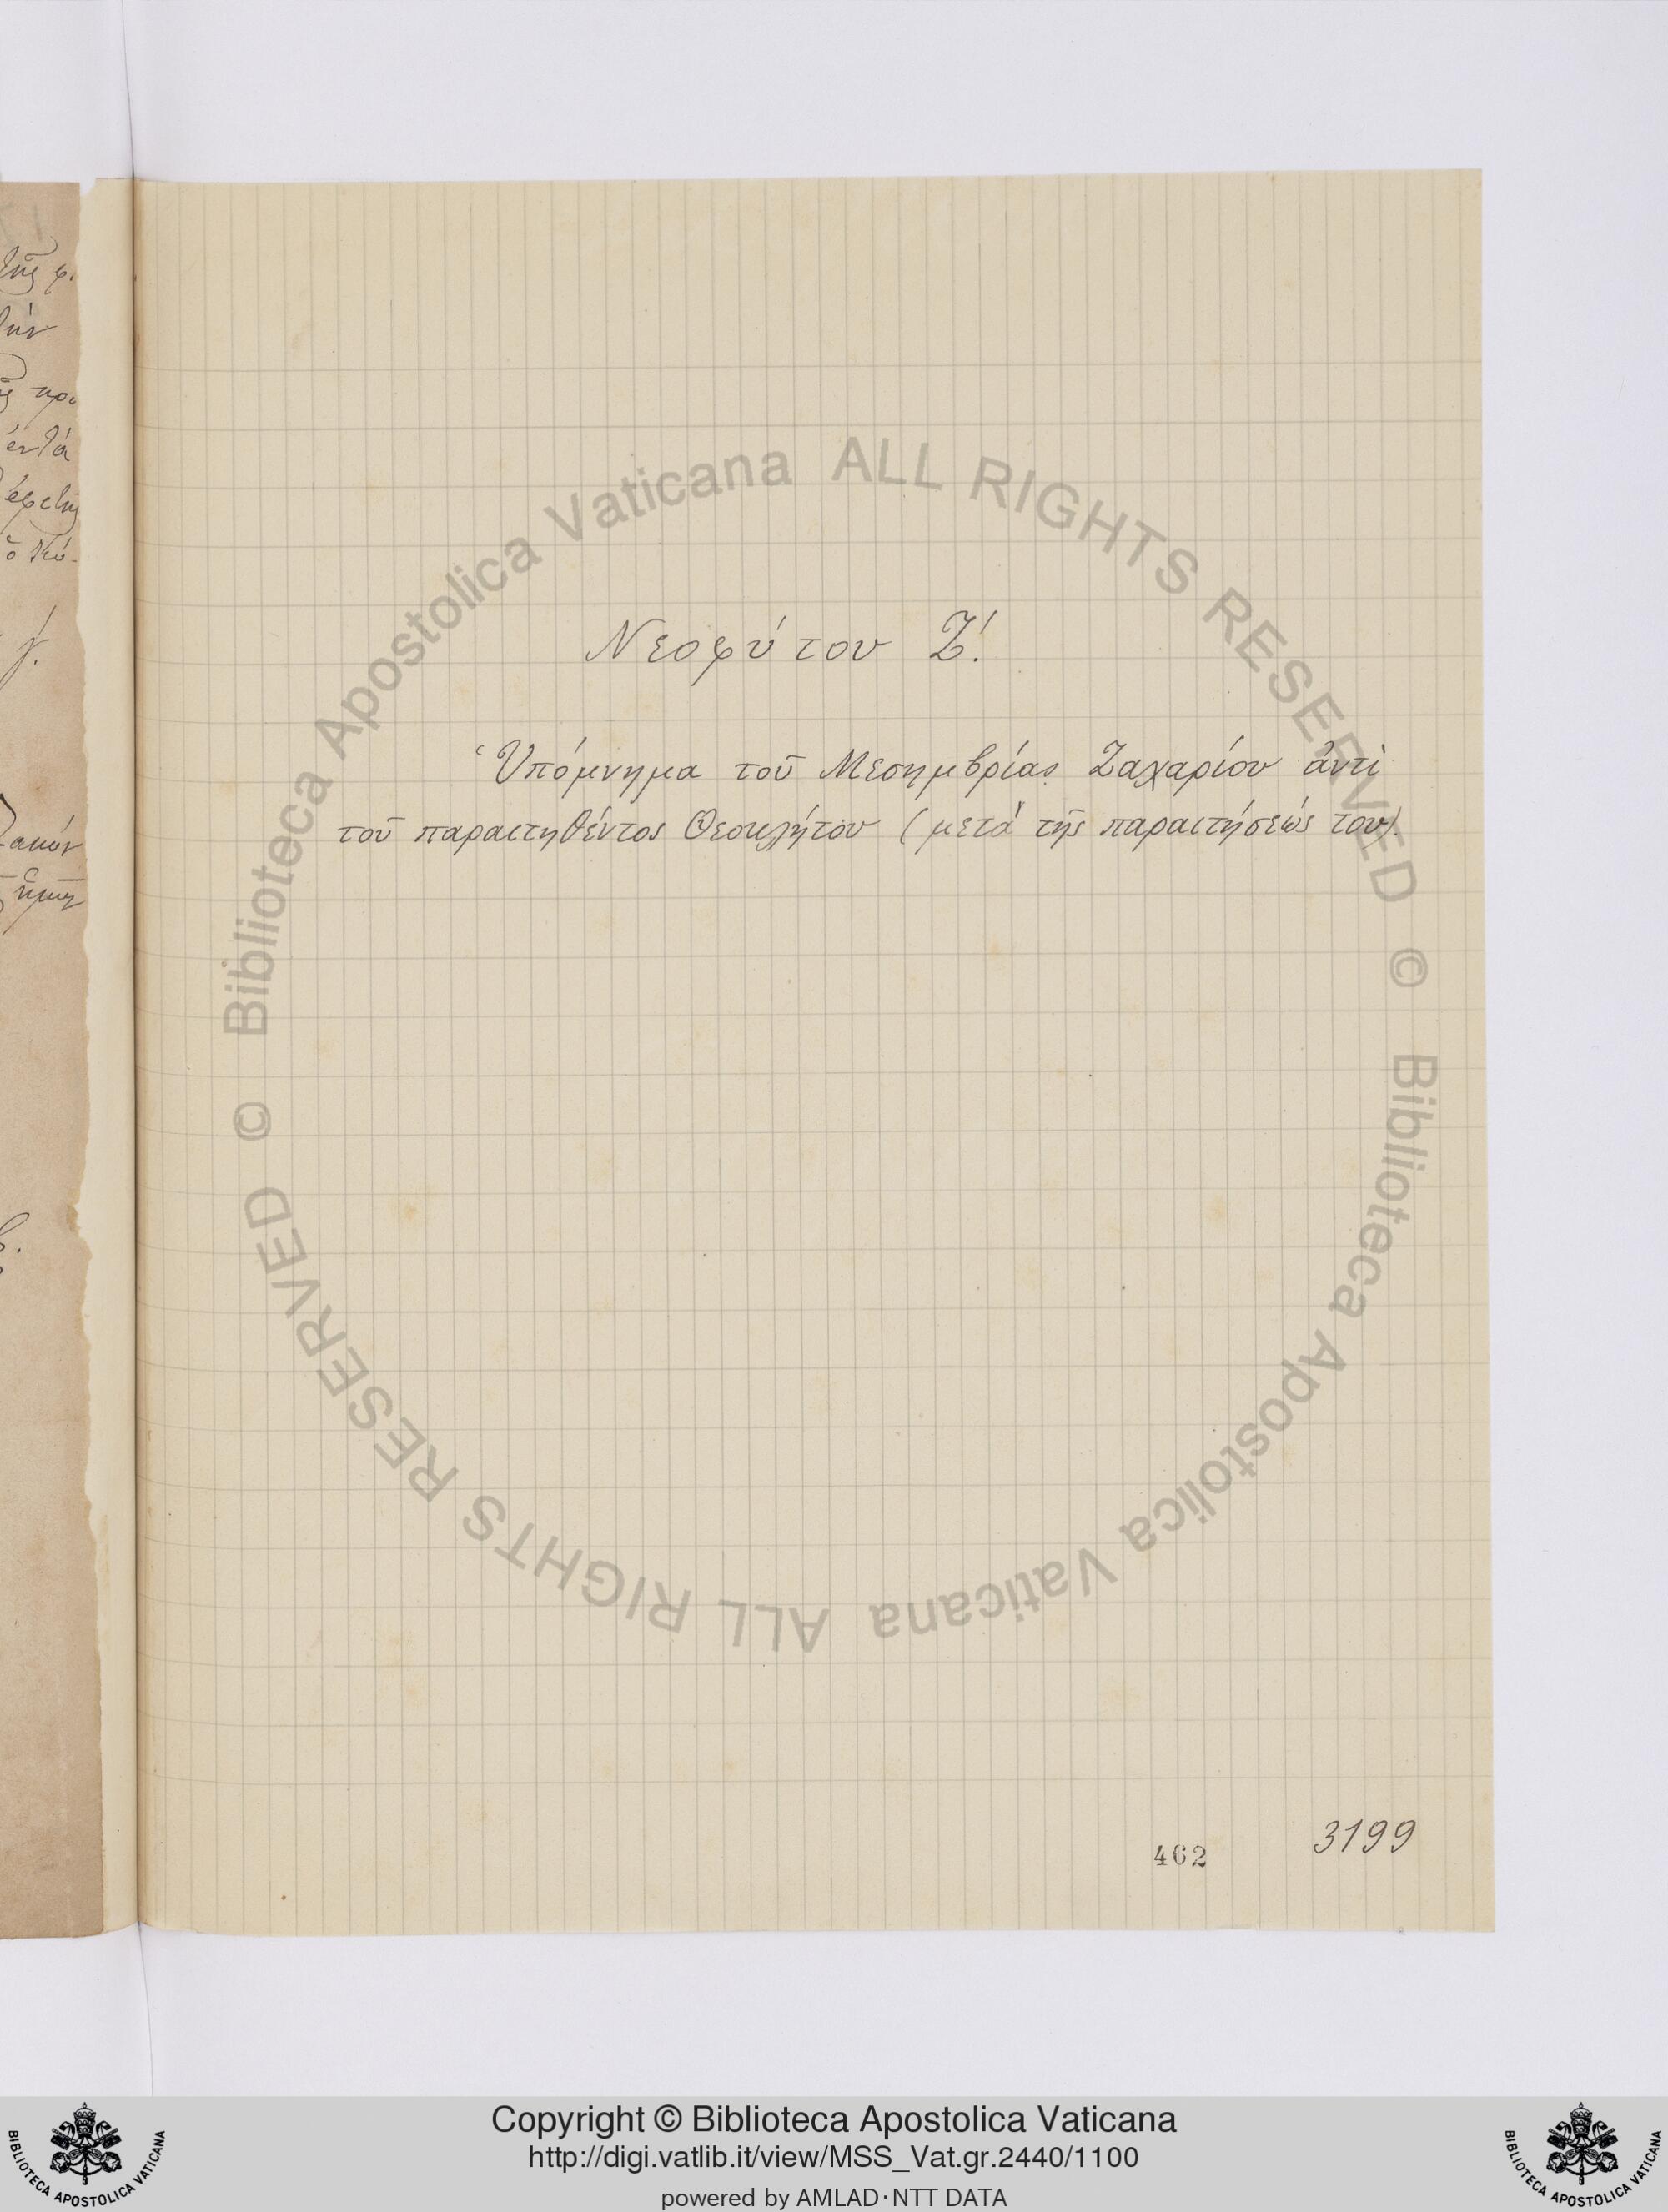 Νεοφύτου Ζ!
Ὑπόμνημα τοῦ Μεσημβρίας Ζαχαρίου ἀντὶ
τοῦ παραιτηθέντος Θεοκλήτου (μετὰ τῆς παραιτήσεώς του).
462
3199
© Biblioteca Apostolica Vaticana ALL RIGHTS RESERVED
© Biblioteca Apostolica Vaticana ALL RIGHTS RESERVED
Copyright © Biblioteca Apostolica Vaticana
http://digi.vatlib.it/view/MSS_Vat.gr.2440/1100
powered by AMLAD·NTT DATA
BIBLIOTECA APOSTOLICA VATICANA
BIBLIOTECA APOSTOLICA VATICANA